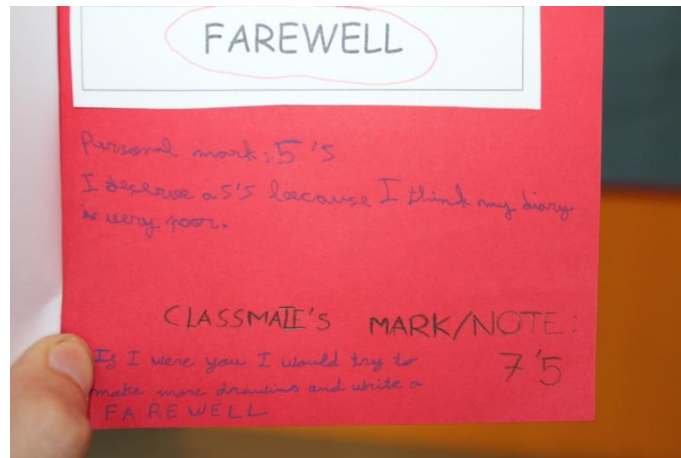 FAREWELL
Personal mark: 5'5
I deserve a 5'5 because I think my diary
is very poor.
CLASSMATE'S MARK/NOTE:
7'5
If I were you I would try to
make more drawins and write a
FAREWELL